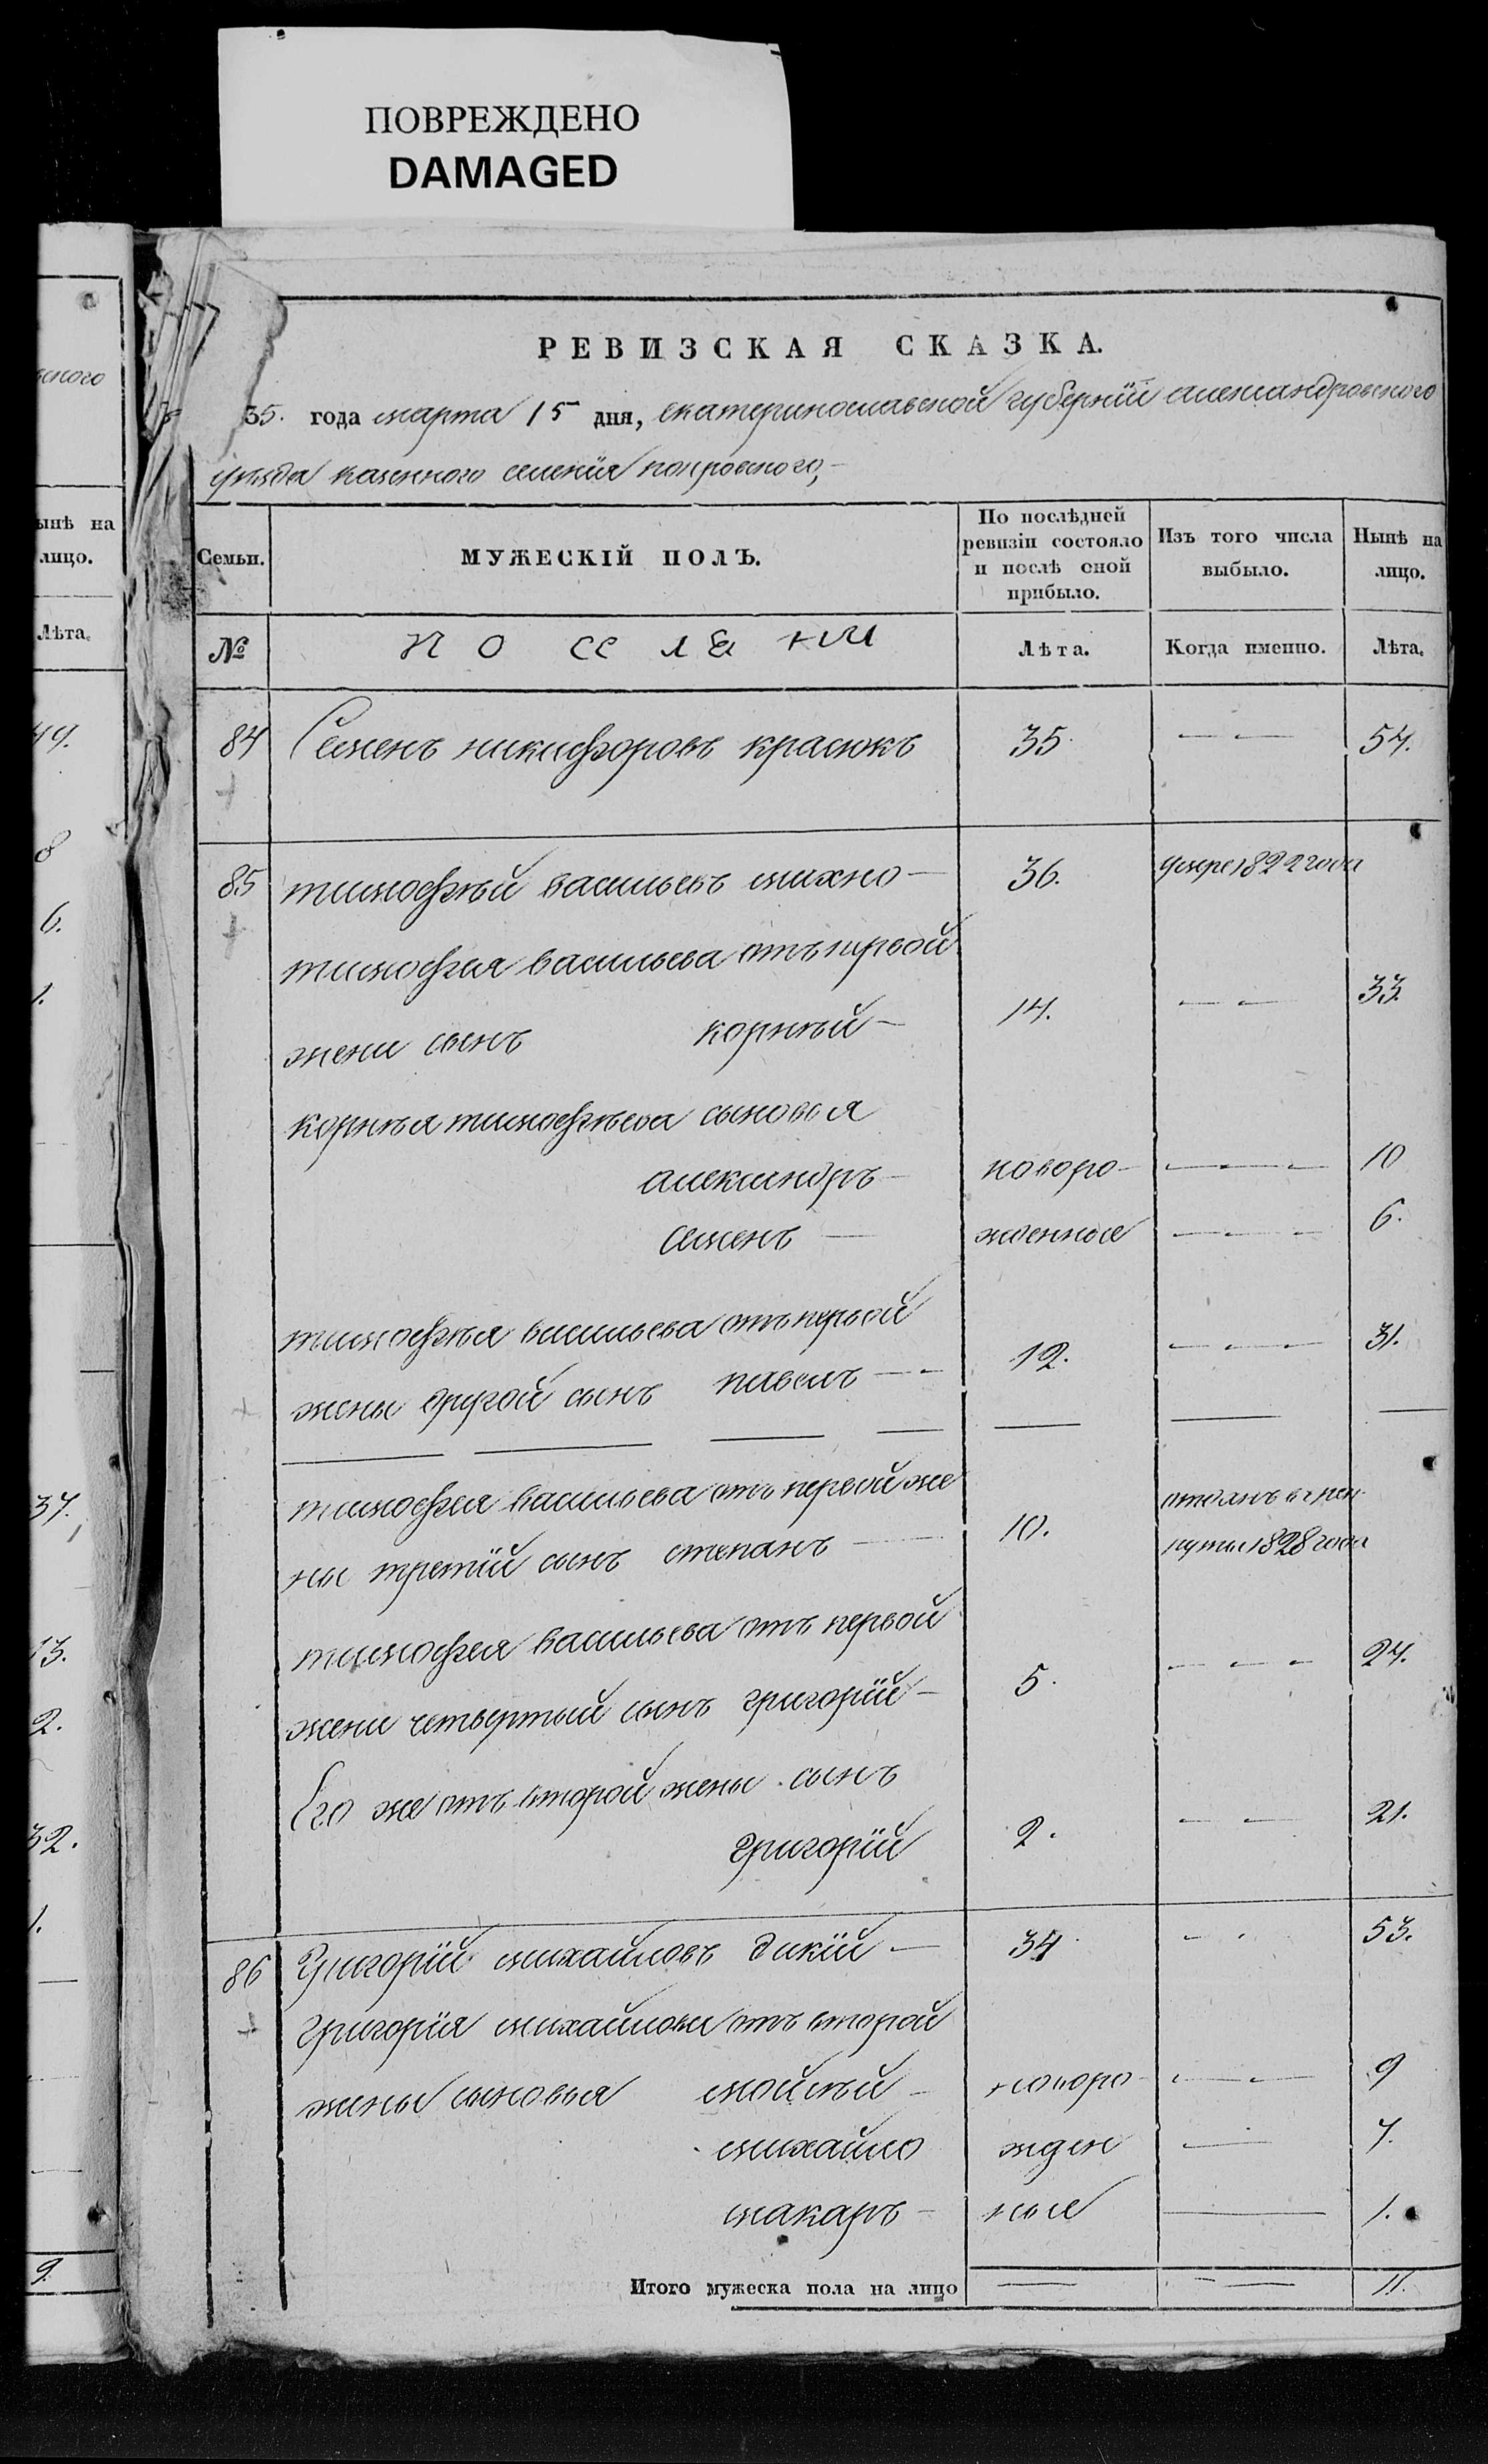 ПОВРЕЖДЕНО
DAMAGED
РЕВИЗСКАЯ СКАЗКА.
35. года марта 15 дня, екатеринославской губерніи александровского
уѣзда казенного селенія покровского,
Семьи. МУЖЕСКІЙ ПОЛЪ. По послѣдней ревизіи состояло и послѣ оной прибыло. Изъ того числа выбыло. Нынѣ на лицо.
№ Лѣта. Когда именно. Лѣта.
84 Семенъ никифоровъ красюкъ 35. — — 54.
85 тимофѣй васильевъ михно — 36. умре 1822 года
тимофея васильева отъ первой
жени сынъ корнѣй — 14. — — 33.
корнѣя тимофѣева сыновья
александръ — новоро- — — — 10
семенъ — жденные — — — 6.
тимофѣя васильева отъ первой
жены другой сынъ павелъ — 12. — — — 31.
тимофея васильева отъ первой же
ны третій сынъ степанъ — 10. отданъ в рек-
руты 1828 года
тимофея васильева отъ первой
жени четвертый сынъ григорій — 5. — — — 24.
Его же отъ второй жены сынъ
григорій 2. — — 21.
86 Григорій михайловъ дикій — 34. — 53.
григорія михайлова отъ второй
жены сыновья мойсѣй — новоро- — — — 9
михайло жден — 7.
макаръ — ные — 1.
Итого мужеска пола на лицо — — — 11.
ского
ынѣ на
лицо.
Лѣта.
49.
8
6.
1.
37.
13.
2.
32.
1.
9.